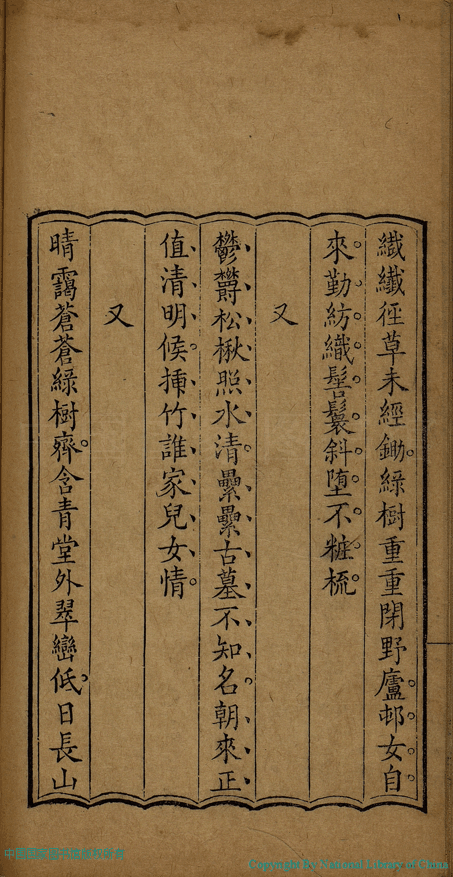 纎纎徑草未經鋤綠樹重重閉野廬邨女自
來勤紡織髻鬟斜墮不粧梳
又
鬱鬱松楸照水清纍纍古墓不知名朝來正
值清明候揷竹誰家兒女情
又
晴靄蒼蒼綠樹齊含青堂外翠巒低日長山
Copyright By National Library of China